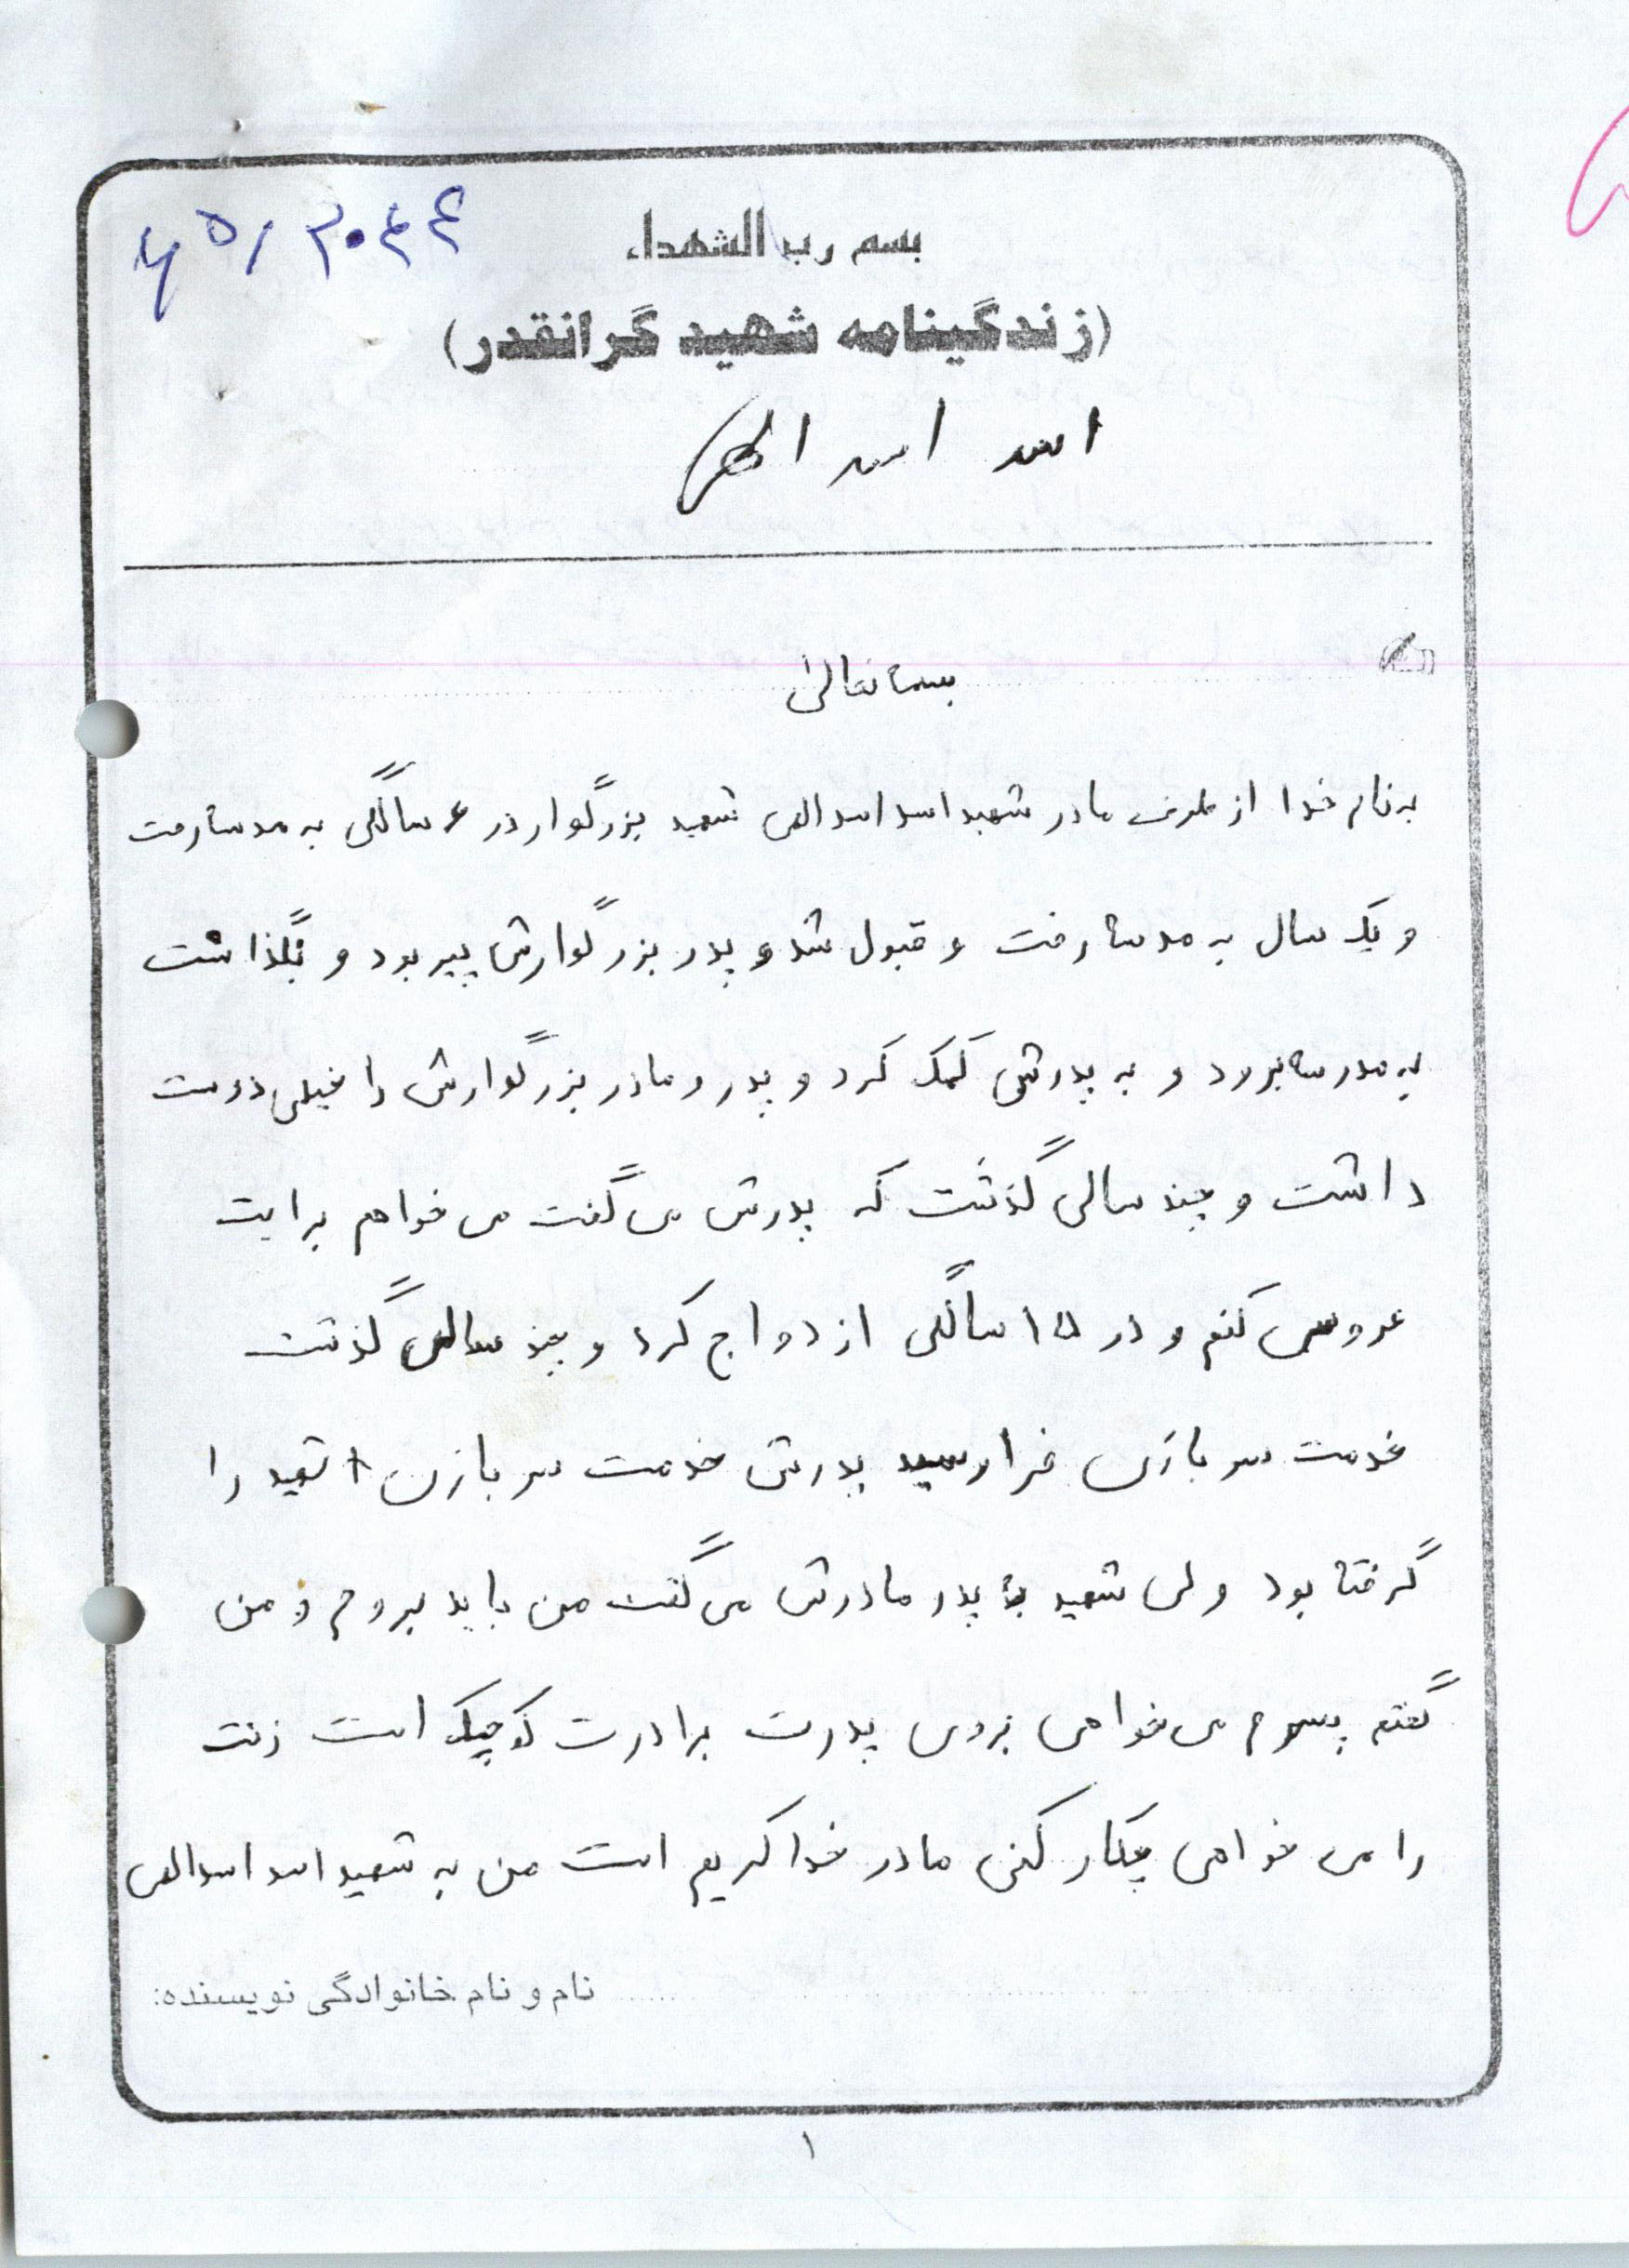 ۶۵/۲۰۴۴
بسم رب الشهداء
(زندگینامه شهید گرانقدر)
اسد اسد الهی
بسمه تعالی
به نام خدا از طرف مادر شهید اسد اسد الهی شهید بزرگوار در ۶ سالگی به مدسه رفت
و یک سال به مدسه رفت و قبول شد و پدر بزرگوارش پیر بود و نگذاشت
به مدرسه برود و به پدرش کمک کرد و پدر و مادر بزرگوارش را خیلی دوست
داشت و چند سالی گذشت که پدرش می گفت می خواهم برایت
عروسی کنم و در ۱۵ سالگی ازدواج کرد و چند سالی گذشت
خدمت سربازی فرا رسید پدرش خدمت سربازی شهید را
گرفته بود ولی شهید به پدر مادرش می گفت من باید بروم و من
گفتم پسرم می خواهی بروی پدرت برادرت کوچیک است زنت
را می خواهی چکار کنی مادر خدا کریم است من به شهید اسد اسد الهی
نام و نام خانوادگی نویسنده:
۱